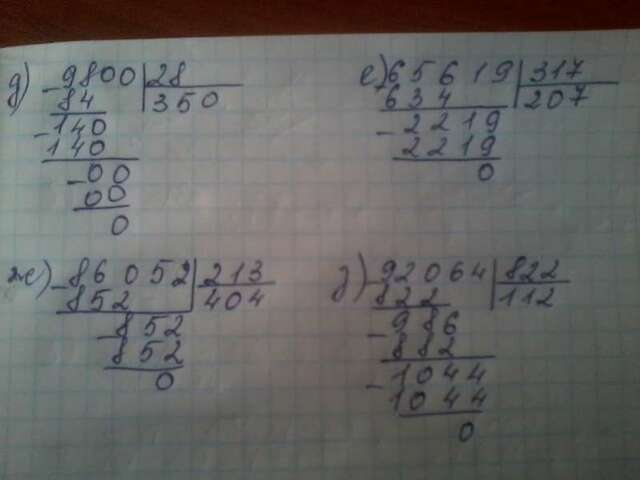 д) -9800 28
84 350
-140
140
-00
00
0
е) 65619 317
634 207
-2219
2219
0
ж) -86052 213
852 404
-852
852
0
з) 92064 822
822 112
-986
882
-1044
1044
0